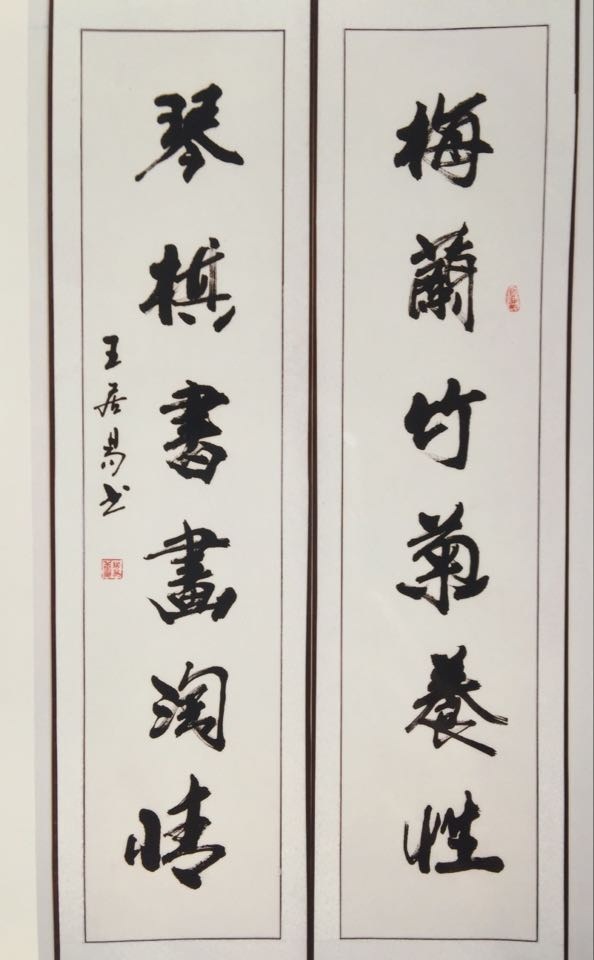 梅蘭竹菊養性
琴棋書畫淘情
王居易书